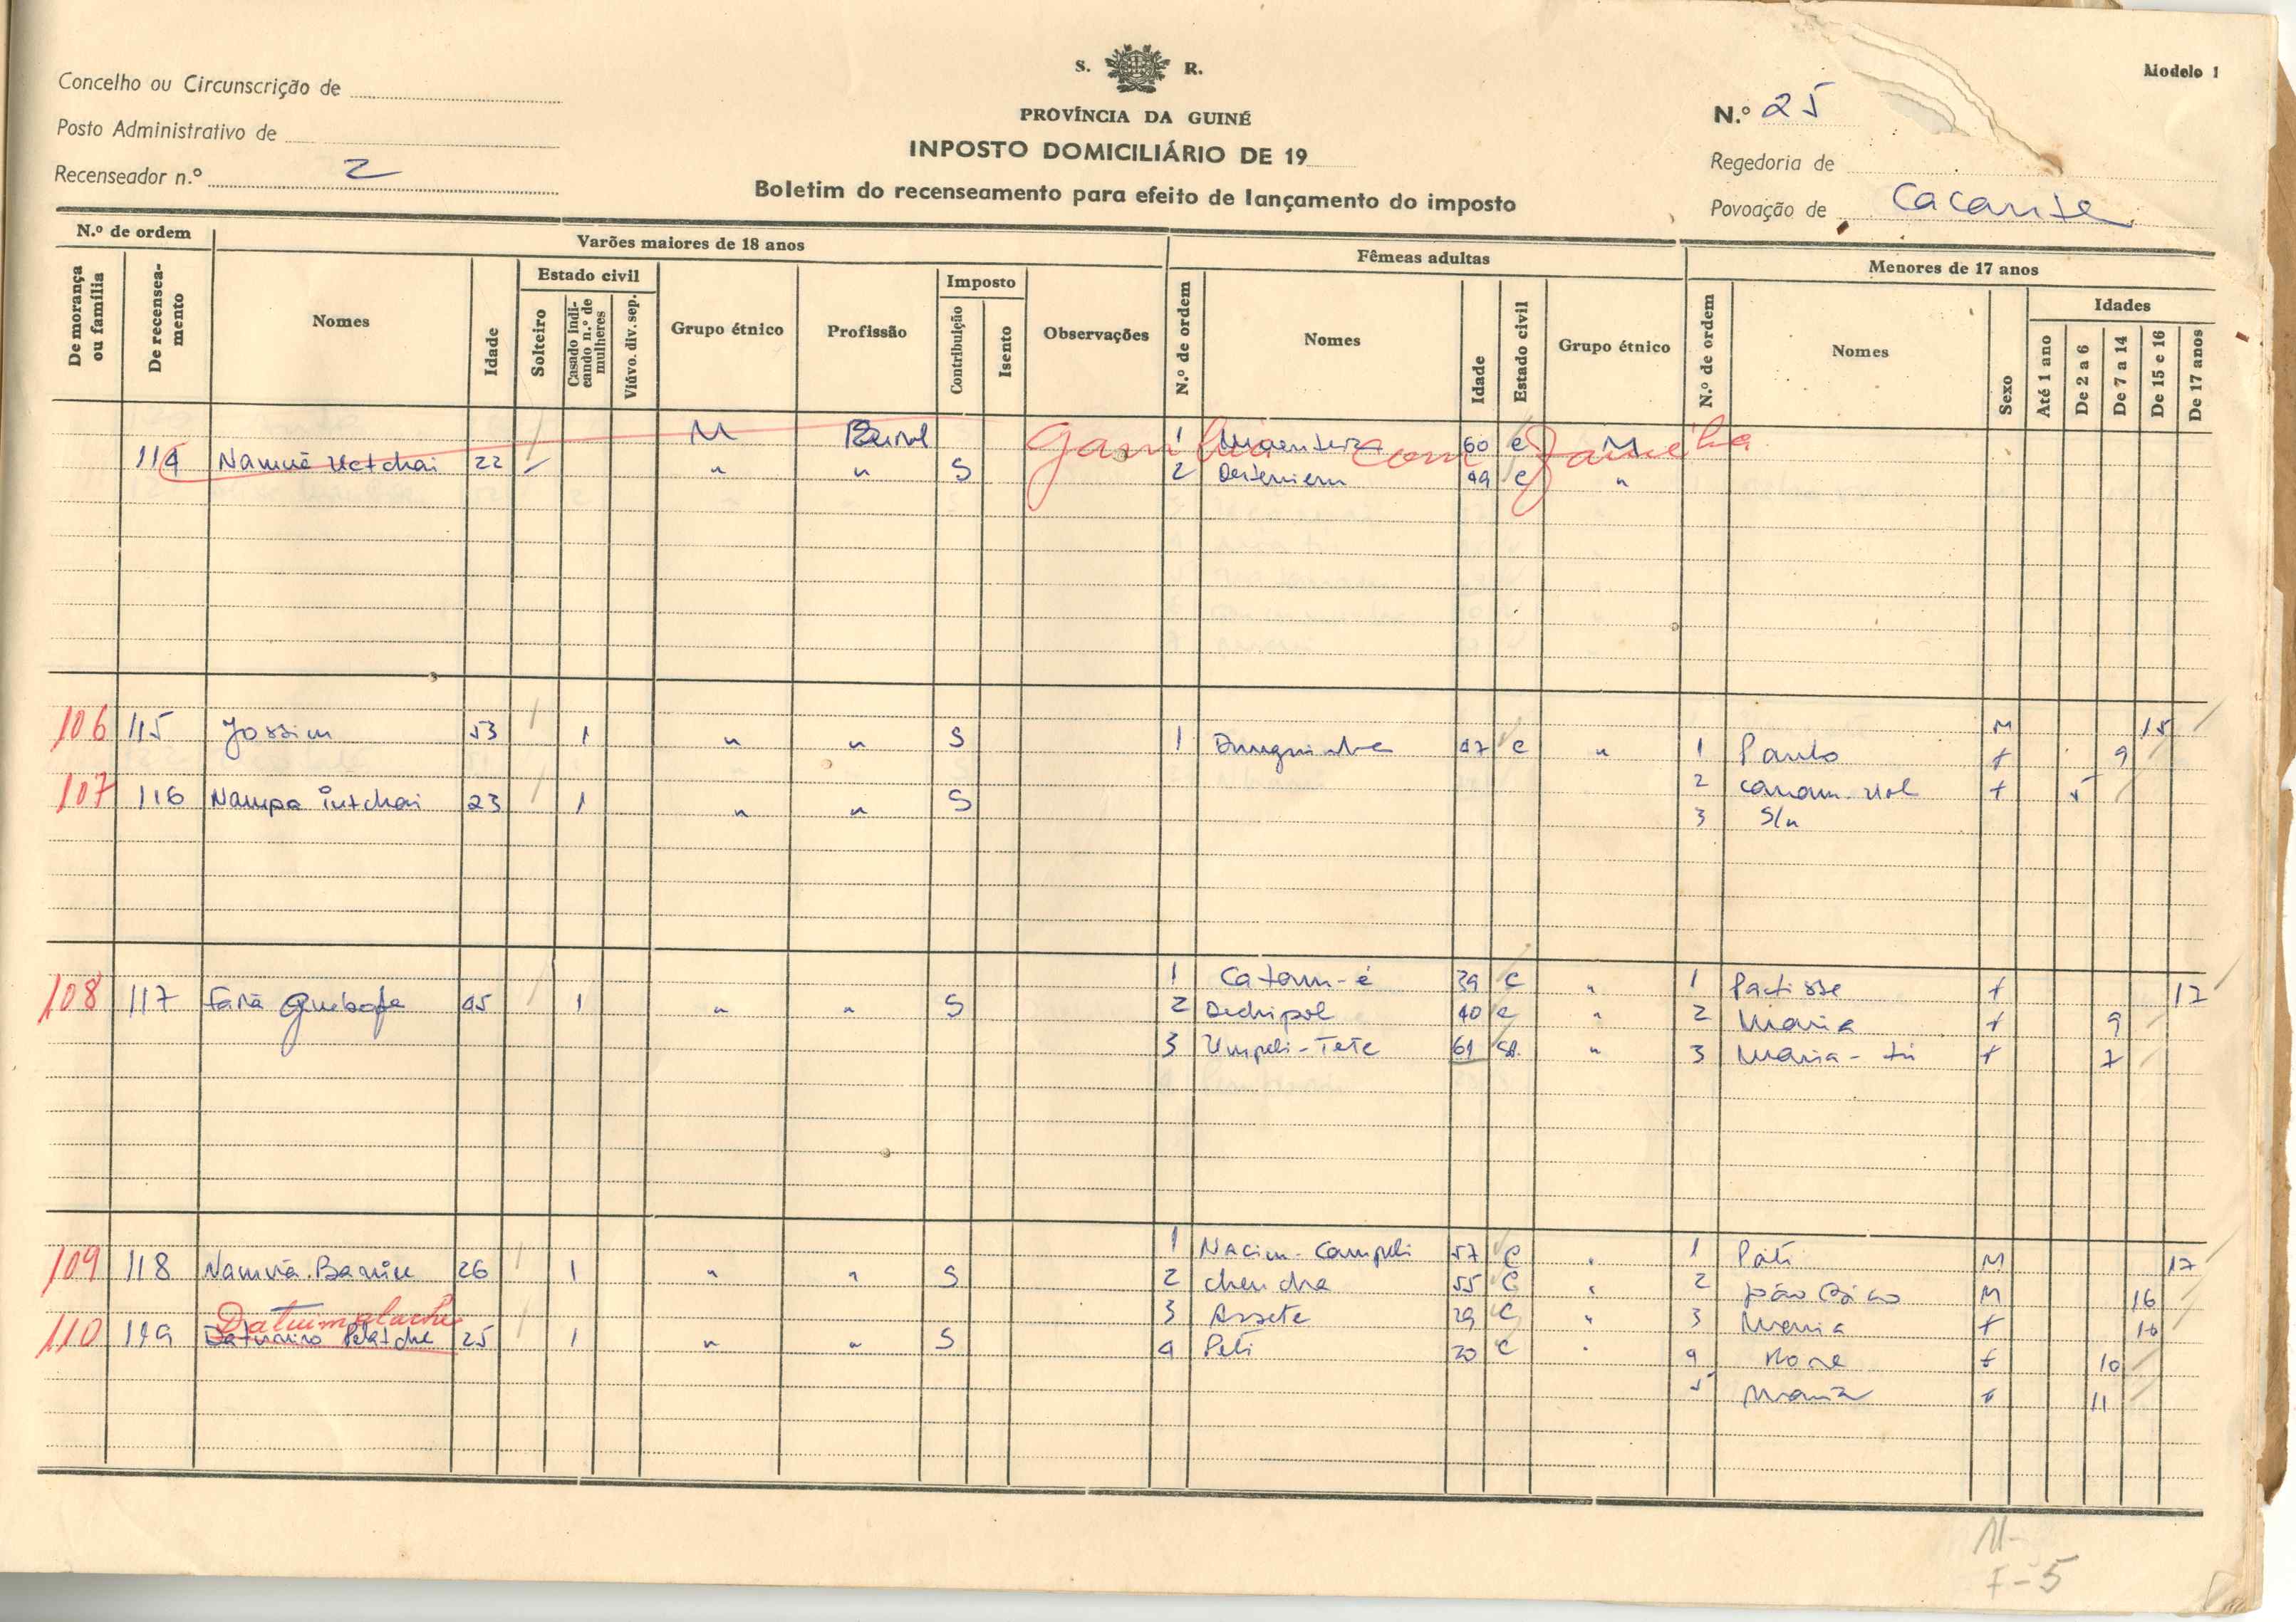 Modelo 1
S. R.
PROVÍNCIA DA GUINÉ
INPOSTO DOMICILIÁRIO DE 19
Boletim do recenseamento para efeito de lançamento do imposto
Concelho ou Circunscrição de
Posto Administrativo de
Recenseador n.º 2
N.º 25
Regedoria de
Povoação de Cacante
N.º de ordem
Varões maiores de 18 anos
Fêmeas adultas
Menores de 17 anos
De morança ou família
De recenseamento
Nomes
Idade
Estado civil
Solteiro
Casado indicando n.º de mulheres
Viúvo. div. sep.
Grupo étnico
Profissão
Imposto
Contribuição
Isento
Observações
N.º de ordem
Nomes
Idade
Estado civil
Grupo étnico
N.º de ordem
Nomes
Sexo
Idades
Até 1 ano
De 2 a 6
De 7 a 14
De 15 e 16
De 17 anos
M 1 60 C M
Gambia com familha
114 22 " " S 2 49 C "
106 115 Jossim 53 1 " " S 1 47 C " 1 Paulo M 15
f 9
107 116 Nampa Intchai 23 1 " " S 2 f 5
3 S/n
1 Catam-é 39 C " 1 Pactisse f 17
108 117 45 1 " " S 2 Dechipol 40 C " 2 Maria f 9
3 Umpeli-Tete 61 " 3 Maria-tú f 7
1 Nacim-Campeli 57 C " 1 Páti M 17
109 118 26 1 " " S 2 chencha 55 C " 2 M 16
3 Assete 29 C " 3 Maria f 16
110 119 25 1 " " S 4 Peti 20 C " 4 f 10
5 Maria f 11
M-
F-5